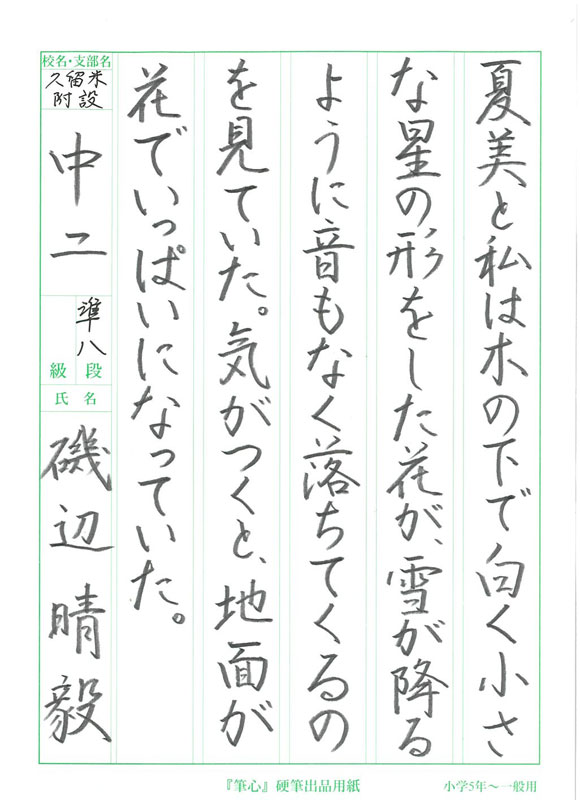 夏美と私は木の下で白く小さ
な星の形をした花が、雪が降る
ように音もなく落ちてくるの
を見ていた。気がつくと、地面が
花でいっぱいになっていた。
校名・支部名
久留米
附設
中二
準八
級 段
氏 名
磯辺 晴毅
『筆心』硬筆出品用紙
小学5年〜一般用